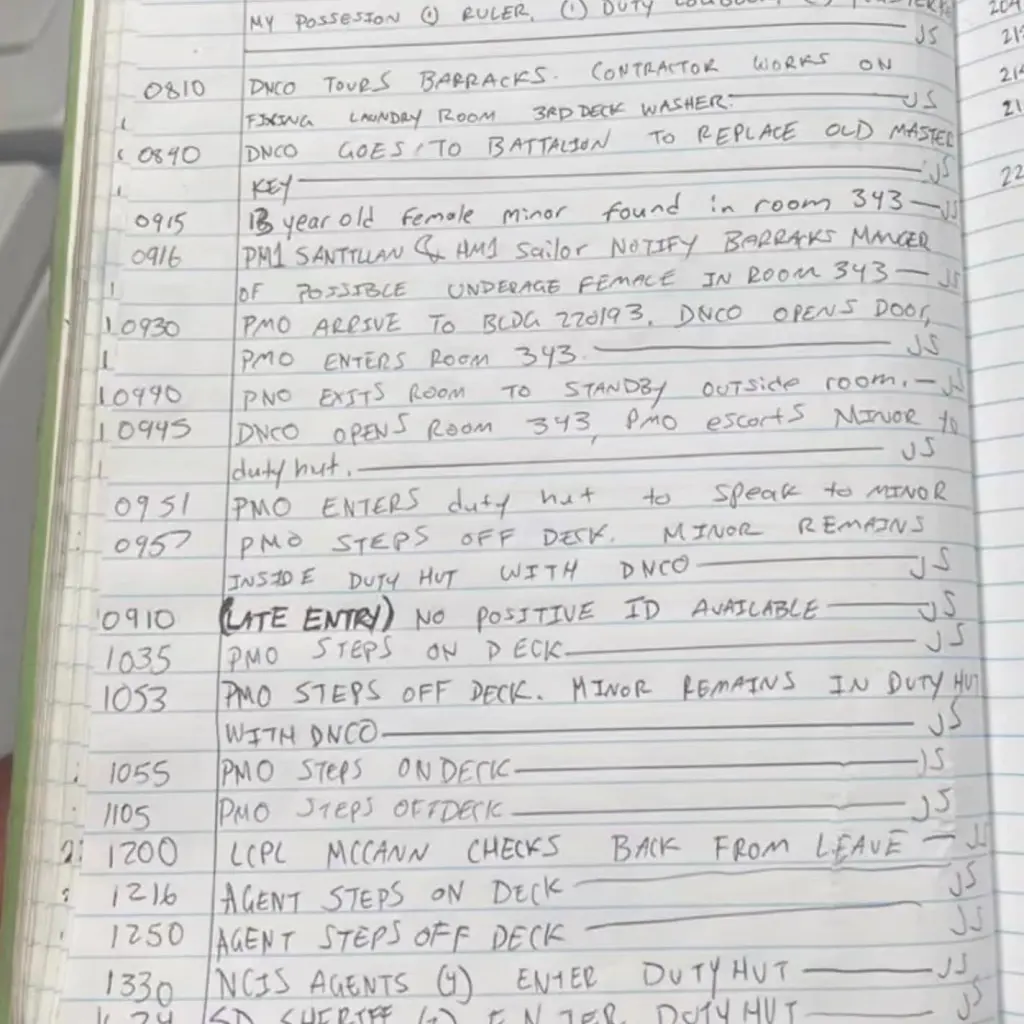 MY POSSESION (1) RULER, (1) DUTY
JS
0810 DNCO TOURS BARRACKS. CONTRACTOR WORKS ON
FIXING LAUNDRY ROOM 3RD DECK WASHER. JS
0840 DNCO GOES TO BATTALION TO REPLACE OLD MASTER
KEY JS
0915 13 year old female minor found in room 343 JS
0916 PM1 SANTTLLAN & HM1 Sailor NOTIFY BARRAKS MANGER
OF POSSIBLE UNDERAGE FEMALE IN ROOM 343 JS
0930 PMO ARRIVE TO BLDG 220193. DNCO OPENS DOOR,
PMO ENTERS ROOM 343. JS
0940 PMO EXITS ROOM TO STANDBY OUTSIDE room. JS
0945 DNCO OPENS ROOM 343, PMO escorts MINOR to
duty hut. JS
0951 PMO ENTERS duty hut to speak to MINOR
0957 PMO STEPS OFF DECK. MINOR REMAINS
INSIDE DUTY HUT WITH DNCO JS
0910 (LATE ENTRY) NO POSITIVE ID AVAILABLE JS
1035 PMO STEPS ON DECK JS
1053 PMO STEPS OFF DECK. MINOR REMAINS IN DUTY HUT
WITH DNCO JS
1055 PMO STEPS ON DECK JS
1105 PMO STEPS OFF DECK JS
1200 LCPL MCCANN CHECKS BACK FROM LEAVE JS
1216 AGENT STEPS ON DECK JS
1250 AGENT STEPS OFF DECK JS
1330 NCIS AGENTS (4) ENTER DUTY HUT JS
SD SHERIFF ENTER DUTY HUT JS